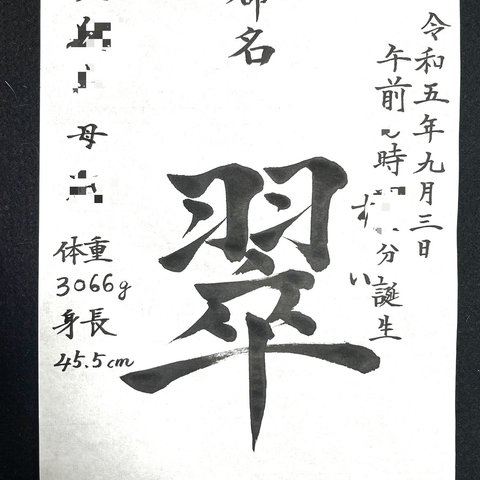 令和五年九月三日
午前 時
分誕生
命名
翠
母
体重
3066g
身長
45.5cm